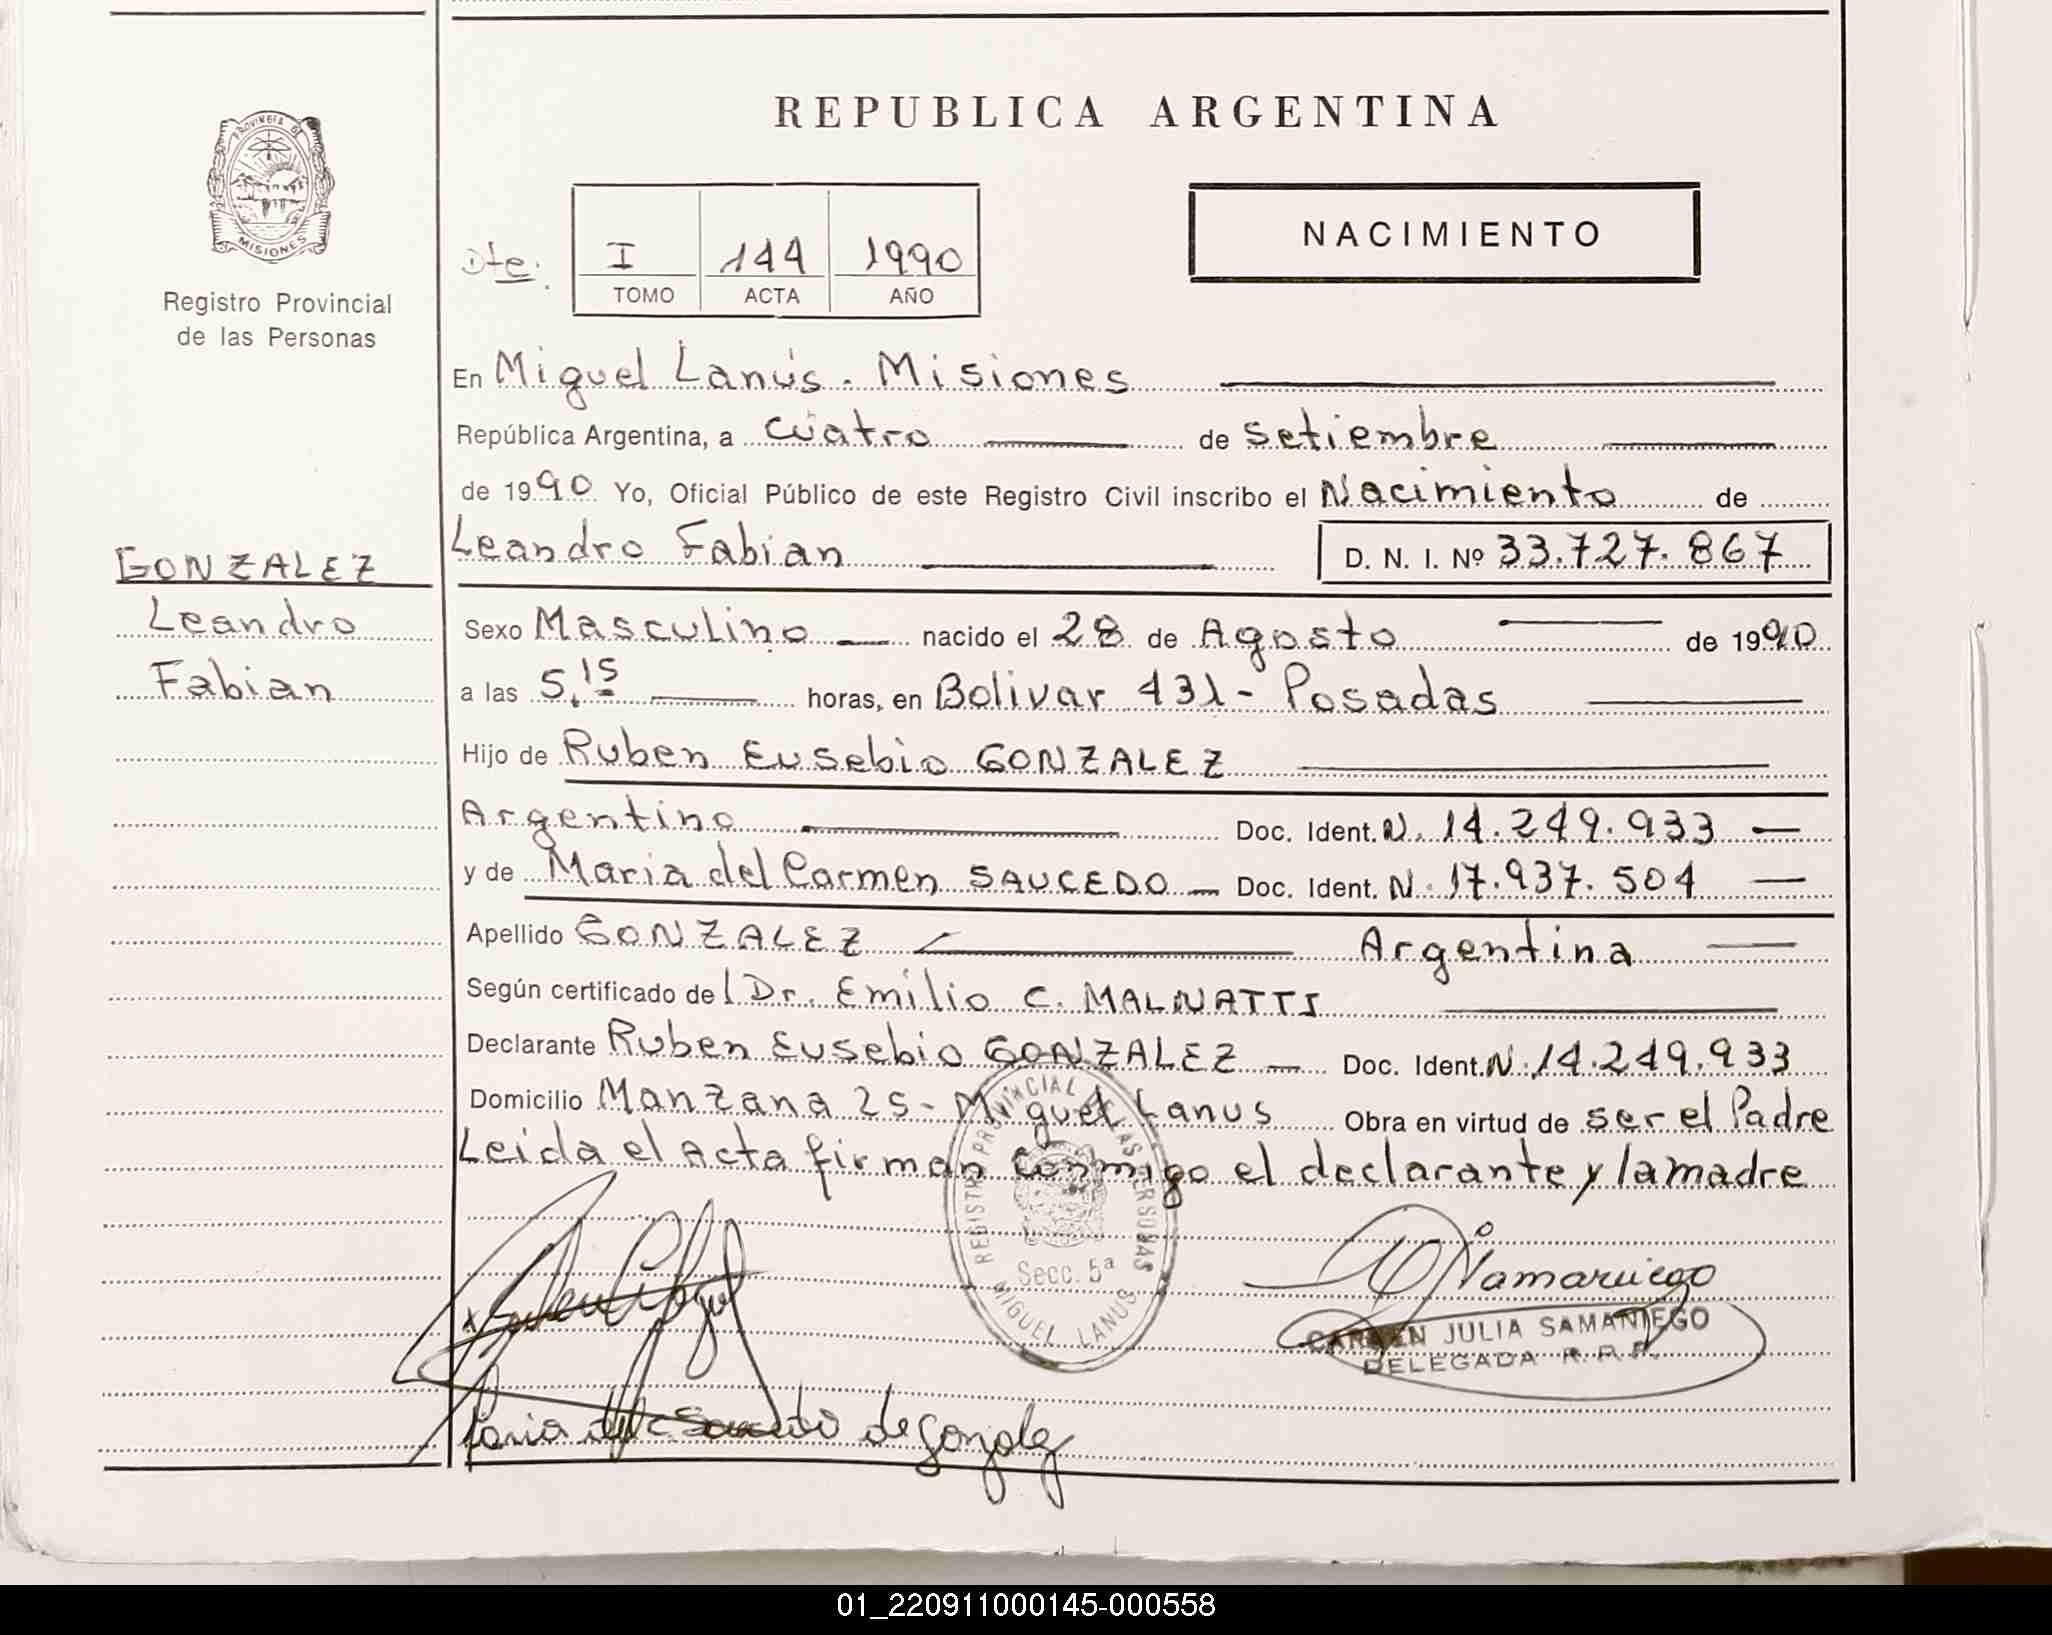 REPUBLICA ARGENTINA
PROVINCIA DE
MISIONES
Registro Provincial
de las Personas
NACIMIENTO
Dte.
I 144 1990
TOMO ACTA AÑO
En Miguel Lanús. Misiones
República Argentina, a cuatro de setiembre
de 1990 Yo, Oficial Público de este Registro Civil inscribo el Nacimiento de
Leandro Fabian D. N. I. Nº 33.727.867
GONZALEZ
Leandro
Fabian
Sexo Masculino nacido el 28 de Agosto de 1990
a las 5.15 horas, en Bolivar 431 - Posadas
Hijo de Ruben Eusebio GONZALEZ
Argentino Doc. Ident. N. 14.249.933
y de Maria del Carmen SAUCEDO Doc. Ident. N. 17.937.504
Apellido GONZALEZ Argentina
Según certificado del Dr. Emilio C. MALNATTI
Declarante Ruben Eusebio GONZALEZ Doc. Ident. N. 14.249.933
Domicilio Manzana 25 - Miguel Lanus Obra en virtud de ser el Padre
Leida el Acta firman conmigo el declarante y la madre
REGISTRO PROVINCIAL DE LAS PERSONAS
Secc. 5ª
MIGUEL LANUS
Samaniego
CARMEN JULIA SAMANIEGO
DELEGADA R.P.P.
Maria del C Saucedo de Gonzalez
01_220911000145-000558